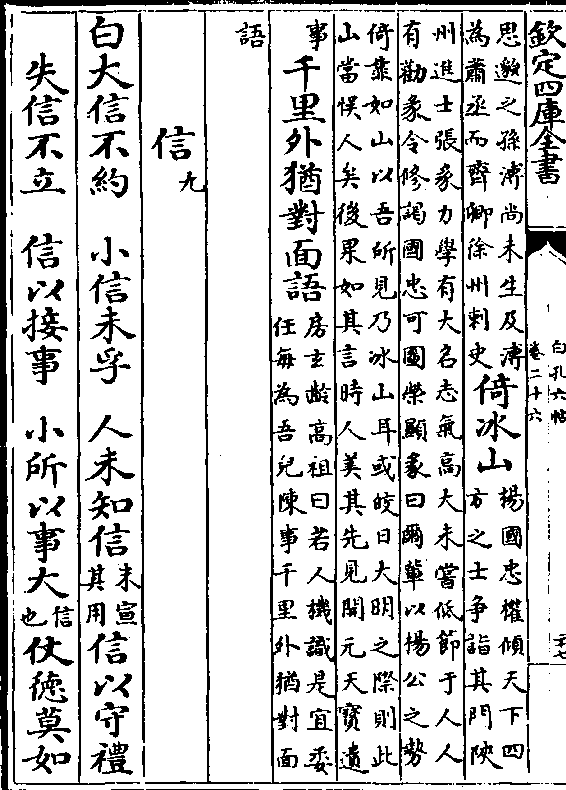 欽定四庫全書
白孔六帖
卷二十六
二十七
思邈之孫溥尚未生及溥
為蕭丞而齊卿徐州刺史
倚冰山
楊國忠權傾天下四
方之士争詣其門陝
州進士張彖力學有大名志氣高大未嘗低節于人人
有勸彖令修謁國忠可圖榮顯彖曰爾軰以楊公之勢
倚靠如山以吾所見乃冰山耳或皎日大明之際則此
山當悮人矣後果如其言時人美其先見開元天寳遺
事
千里外猶對面語
房玄齡高祖曰若人機識是宜委
任每為吾兒陳事千里外猶對面
語
信九
白大信不約　小信未孚　人未知信未宣其用信以守禮
失信不立　信以接事　小所以事大信也仗德莫如